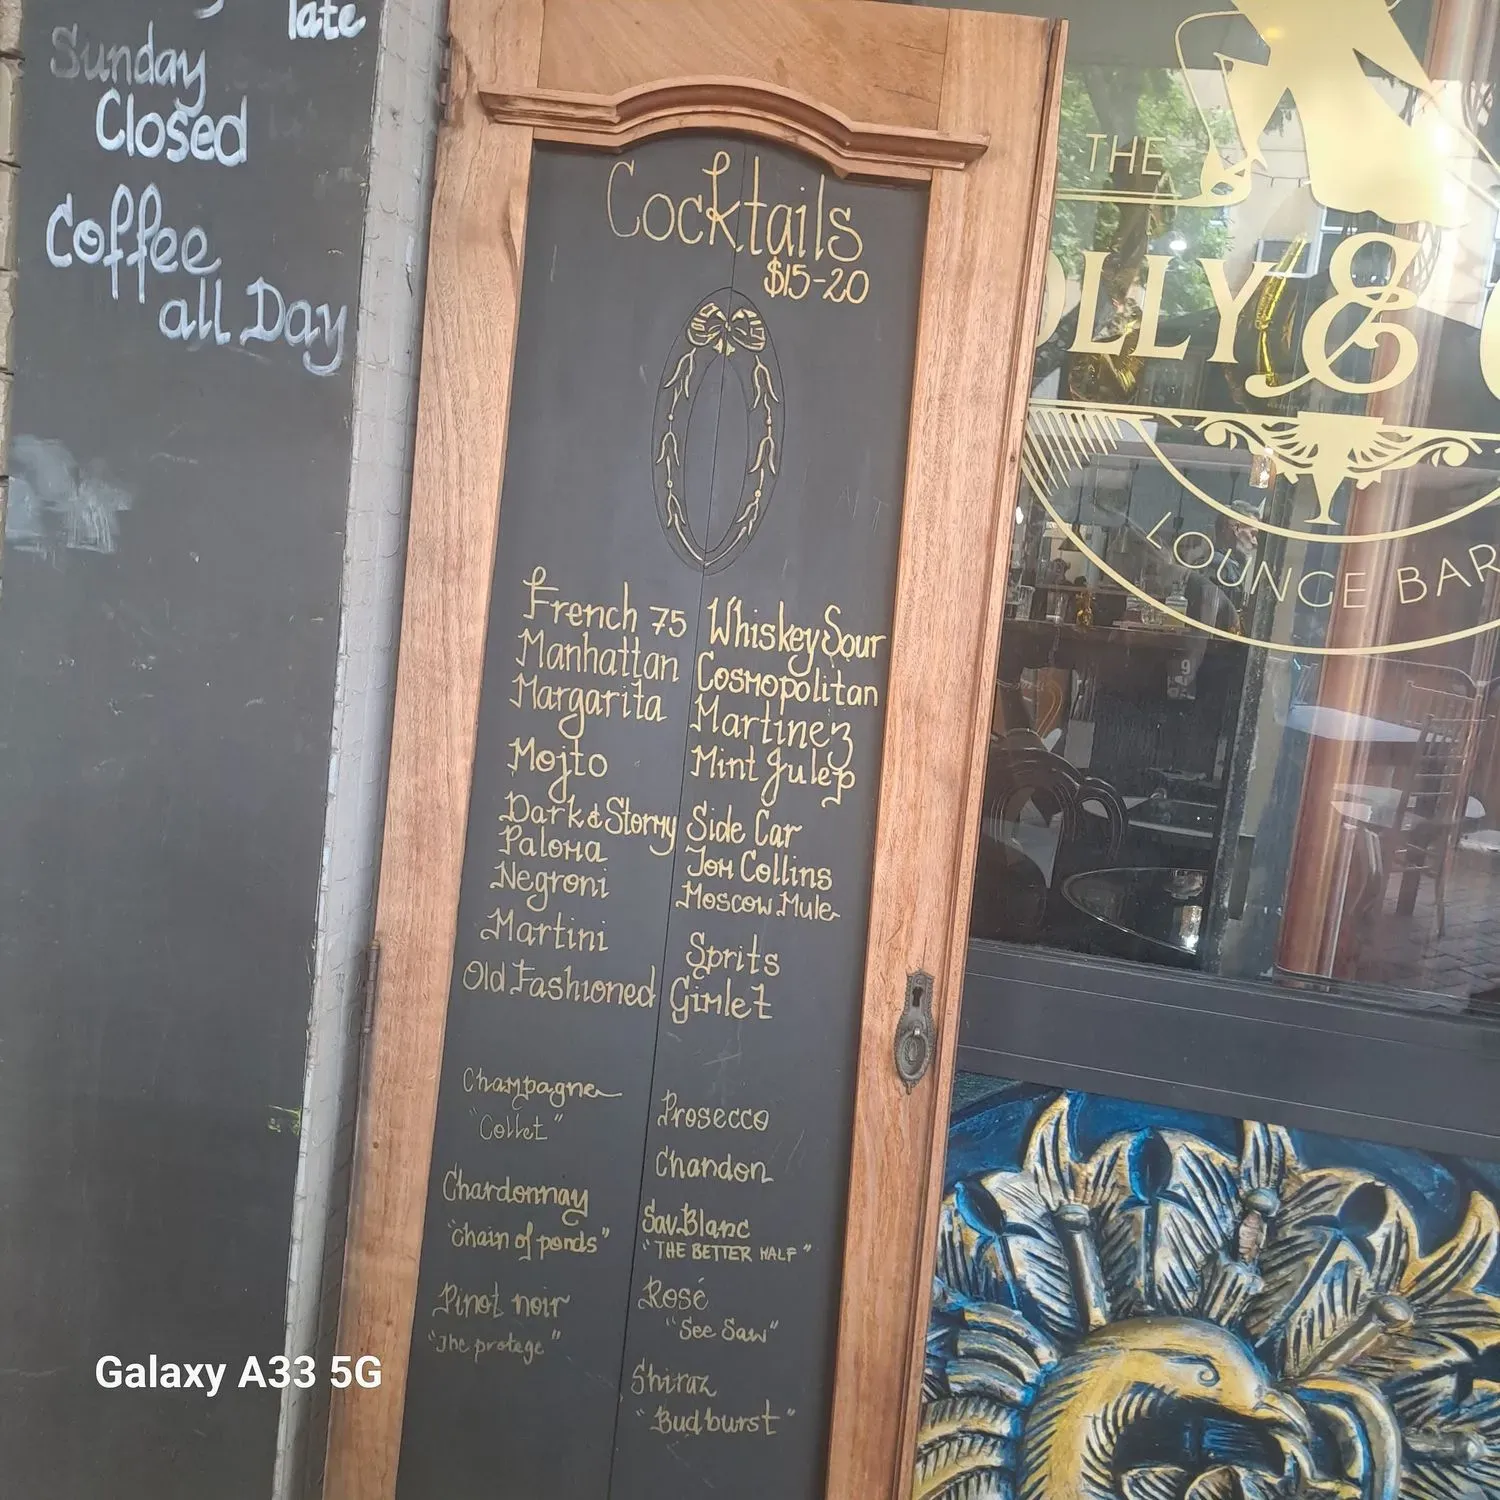 late
Sunday
Closed
Coffee
all Day
Cocktails
$15-20
French 75
Manhattan
Margarita
Mojto
Dark & Stormy
Paloma
Negroni
Martini
Old Fashioned
Whiskey Sour
Cosmopolitan
Martinez
Mint Julep
Side Car
Tom Collins
Moscow Mule
Sprits
Gimlet
Champagne
"Collet"
Chardonnay
"Chain of ponds"
Pinot noir
"The protege"
Prosecco
Chandon
Sav.Blanc
"THE BETTER HALF"
Rosé
"See Saw"
Shiraz
"Budburst"
THE
OLLY &
LOUNGE BAR
9
Galaxy A33 5G